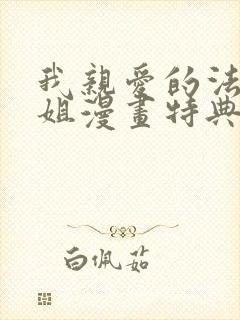 我親愛的法
姐漫畫特典
白佩茹